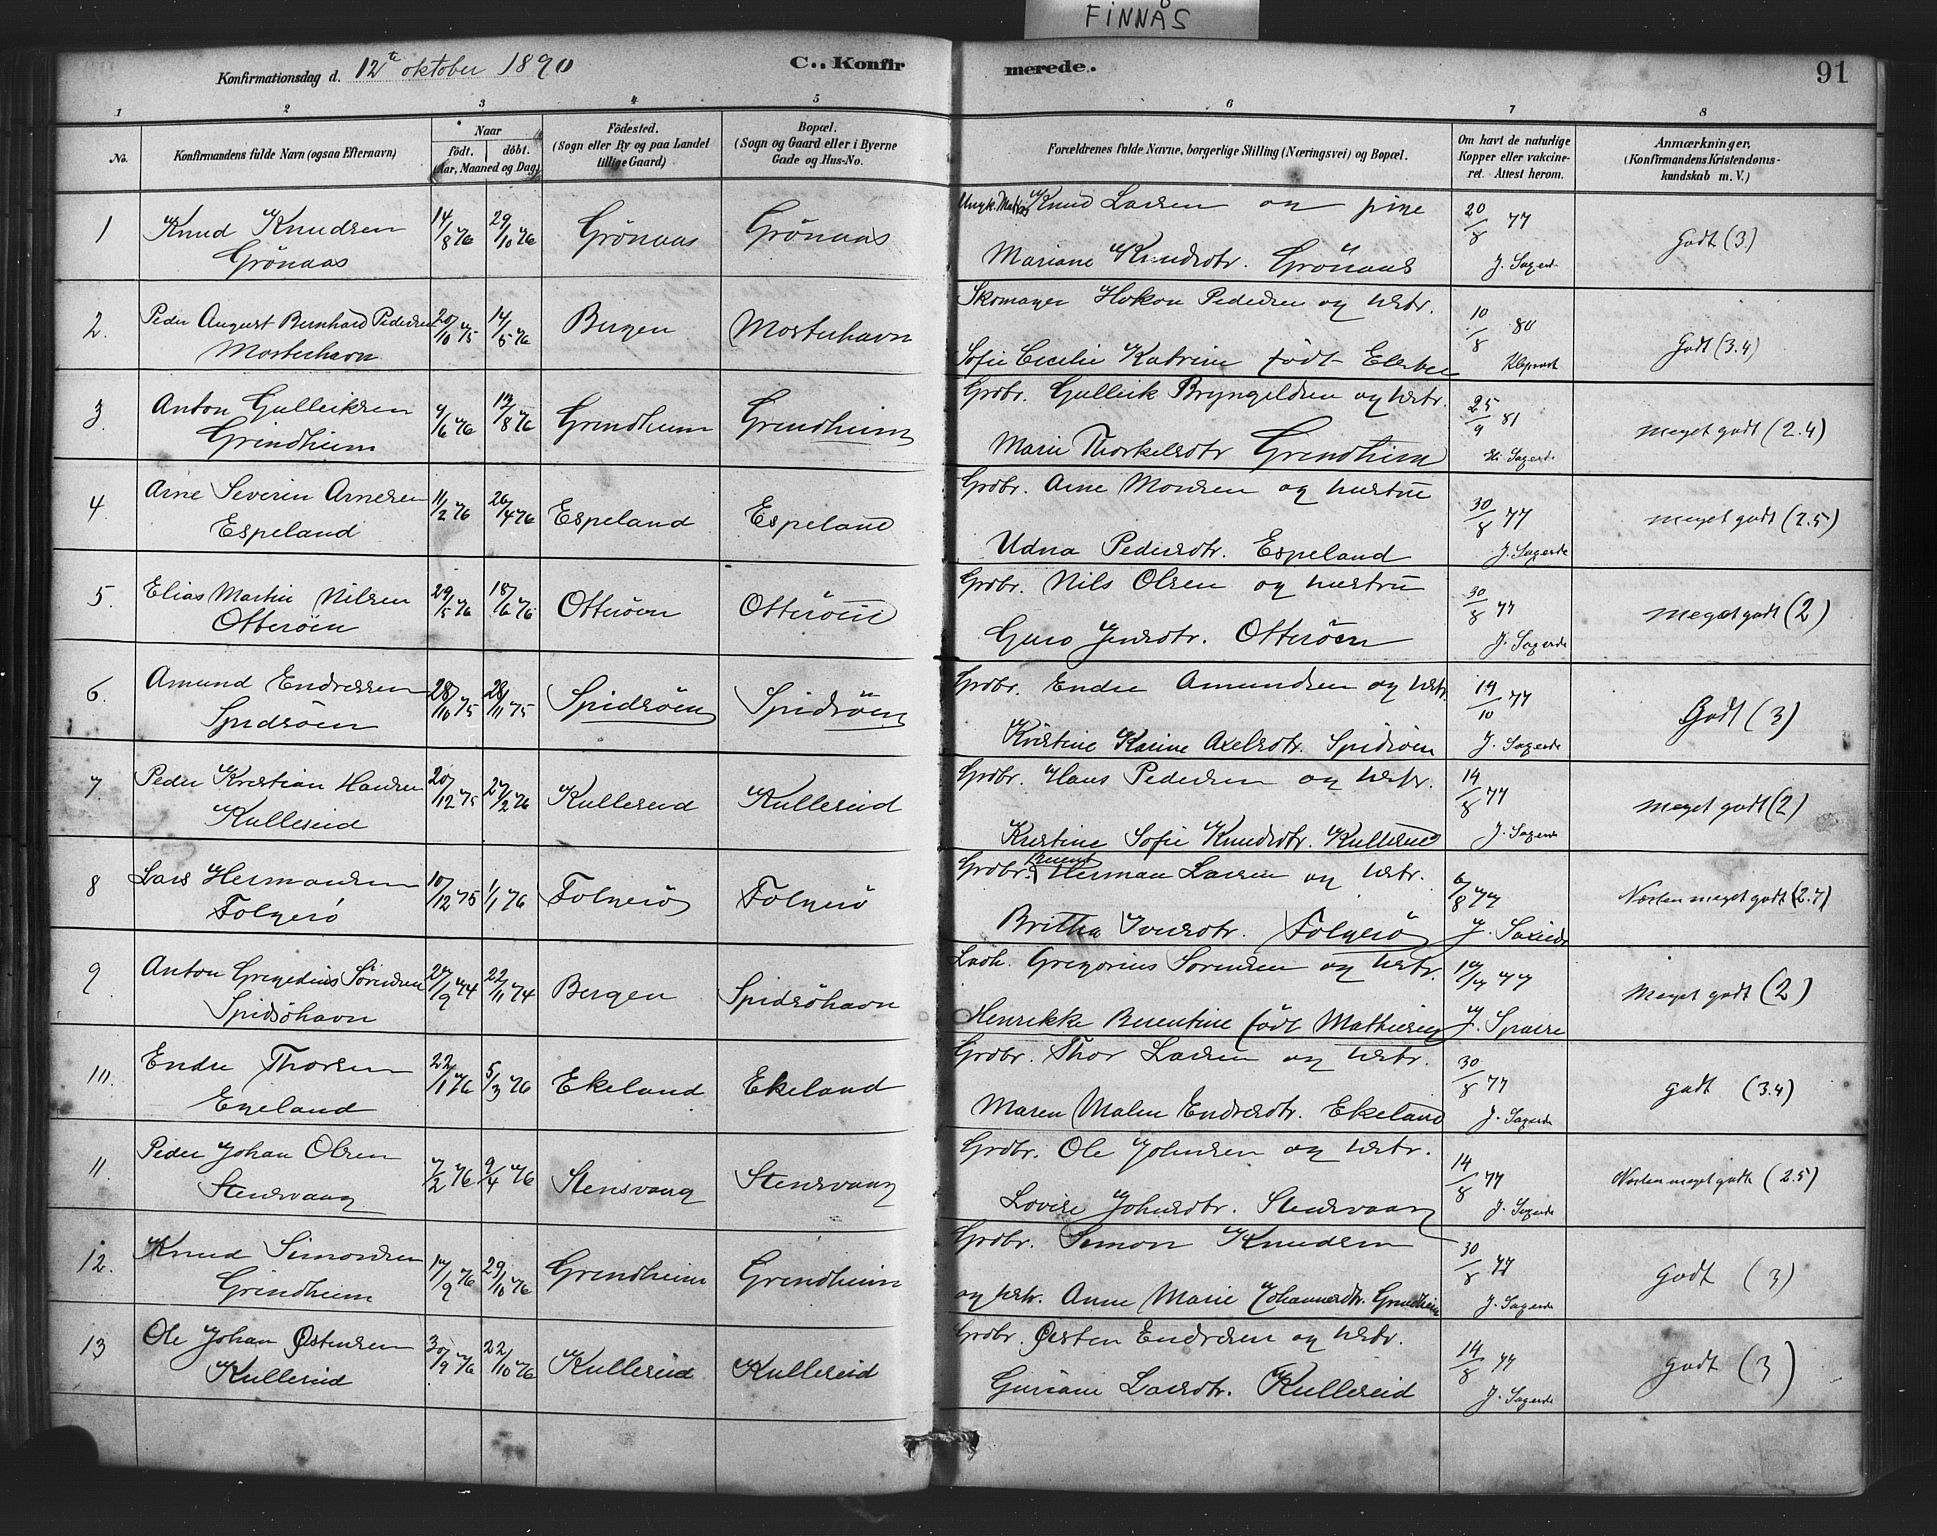 FINNÅS
Konfirmationsdag d. 12te oktober 1890
C.. Konfirmerede.
91
1 2 3 4 5 6 7 8
No.
Konfirmandens fulde Navn (ogsaa Efternavn)
Naar
födt. döbt.
(Aar, Maaned og Dag)
Födested.
(Sogn eller By og paa Landet
tillige Gaard)
Bopæl.
(Sogn og Gaard eller i Byerne
Gade og Hus-No.
Forældrenes fulde Navne, borgerlige Stilling (Næringsvei) og Bopæl.
Om havt de naturlige
Kopper eller vakcine-
ret. Attest herom.
Anmærkninger,
(Konfirmandens Kristendoms-
kundskab m. V.)
1 Knud Knudsen 14/8 76 29/10 76 Grönaas Grönaas Knud Larsen og pige 20/8 77 Godt (3)
Grönaas Mariane Knudsdtr. Grönaas J. Sagerd
2. Peder August Bernhard Pedersen 20/10 75 14/5 76 Bergen Mosterhavn Skomager Hokon Pedersen og hstr. 10/8 80 Godt (3.4)
Mosterhavn Sofie Cecilie Katrine födt
3. Anton Gulleiksen 4/6 76 13/8 76 Grindheim Grindheim Grdbr. Gulleik Bryngeldsen og hstr. 25/9 81 meget godt (2.4)
Grindheim Marie Thorkelsdtr Grindheim
4. Arne Severin Arnesen 11/2 76 26/4 76 Espeland Espeland Grdbr. Arne Monsen og hustru 30/8 77 meget godt (2.5)
Espeland Udna Pedersdtr. Espeland J. Sagerde
5. Elias Martin Nilsen 29/5 76 18/6 76 Otteröen Otteröen Grdbr. Nils Olsen og hustru 30/8 77 meget godt (2)
Otteröen Guro Jensdtr. Otteröen J. Sagerde
6. Amund Endresen 28/10 75 28/11 75 Spidsöen Spidsöen Grdbr. Endre Amundsen og hstr 19/10 77 Godt (3)
Spidsöen Kristine Karine Axelsdtr. Spidsöen J. Sagerde
7. Peder Kristian Hansen 20/12 75 27/2 76 Kullereid Kullereid Grdbr. Hans Pedersen og hstr. 14/8 77 meget godt (2)
Kullereid Kristine Sofie Knudsdtr. Kullereid J. Sagerde
8 Lars Hermansen 10/12 75 1/1 76 Folgerö Folgerö Grdbr. Herman Larsen og hstr. 6/8 77 Næsten meget godt (2.7)
Folgerö Britha Iversdtr. Folgerö
9 Anton Sörensen 20/9 74 22/11 74 Bergen Spidsöhavn Gregorius Sörensen og hstr. 77 Meget godt (2)
Spidsöhavn Henrikke Berentine födt Mathiesen
10. Endre Thorsen 22/1 76 5/3 76 Ekeland Ekeland Grdbr. Thor Larsen og hstr. 30/8 77 godt (3.4)
Egeland Maren Malene Endresdtr. Ekeland J. Sagerde
11. Peder Johan Olsen 7/2 76 9/4 76 Stensvaag Stensvaag Grdbr. Ole Johnsen og hstr. 14/8 77 Næsten meget godt (2.5)
Stensvaag Lovise Johnsdtr. Stensvaag J. Sagerde
12. Knud Simonsen 17/9 76 29/10 76 Grindheim Grindheim Grdbr. Simon Knudsen 30/8 77 godt (3)
Grindheim og hstr. Anne Marie Johannesdtr. Grindheim J. Sagerde
13 Ole Johan Östensen 30/9 76 22/10 76 Kullereid Kullereid Grdbr. Östen Endresen og hstr. 14/8 77 godt (3)
Kullereid Guriane Larsdtr. Kullereid J. Sagerde